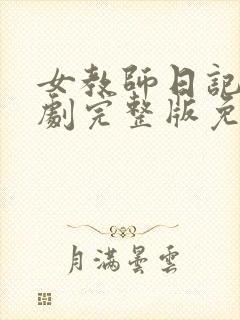 女教師日記
劇完整版免
月滿曇雲